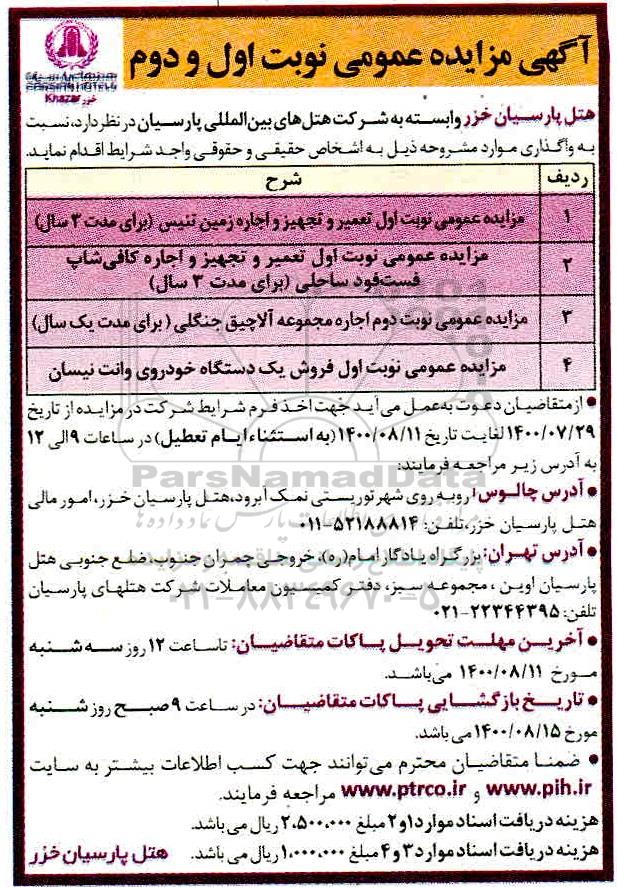 آگهی مزایده عمومی نوبت اول و دوم
PARSIAN HOTELS
Khazar خزر
هتل پارسیان خزر وابسته به شرکت هتل‌های بین‌المللی پارسیان در نظر دارد، نسبت
به واگذاری موارد مشروحه ذیل به اشخاص حقیقی و حقوقی واجد شرایط اقدام نماید.
ردیف شرح
۱ مزایده عمومی نوبت اول تعمیر و تجهیز و اجاره زمین تنیس (برای مدت ۳ سال)
۲ مزایده عمومی نوبت اول تعمیر و تجهیز و اجاره کافی‌شاپ
فست‌فود ساحلی (برای مدت ۳ سال)
۳ مزایده عمومی نوبت دوم اجاره مجموعه آلاچیق جنگلی (برای مدت یک سال)
۴ مزایده عمومی نوبت اول فروش یک دستگاه خودروی وانت نیسان
• از متقاضیان دعوت به‌عمل می‌آید جهت اخذ فرم شرایط شرکت در مزایده از تاریخ
۱۴۰۰/۰۷/۲۹ لغایت تاریخ ۱۴۰۰/۰۸/۱۱ (به استثناء ایام تعطیل) در ساعات ۹ الی ۱۲
به آدرس زیر مراجعه فرمایند:
ParsNamadData
• آدرس چالوس: روبه روی شهر توریستی نمک آبرود، هتل پارسیان خزر، امور مالی
هتل پارسیان خزر، تلفن: ۵۲۱۸۸۸۱۴-۰۱۱
• آدرس تهران: بزرگراه یادگار امام(ره)، خروجی چمران جنوب، ضلع جنوبی هتل
پارسیان اوین، مجموعه سبز، دفتر کمیسیون معاملات شرکت هتلهای پارسیان
۰۲۱-۸۸۳۴۹۶۷۰-۵
تلفن: ۲۲۳۴۴۳۹۵-۰۲۱
• آخرین مهلت تحویل پاکات متقاضیان: تا ساعت ۱۲ روز سه شنبه
مورخ ۱۴۰۰/۰۸/۱۱ می‌باشد.
• تاریخ بازگشایی پاکات متقاضیان: در ساعت ۹ صبح روز شنبه
مورخ ۱۴۰۰/۰۸/۱۵ می باشد.
• ضمنا متقاضیان محترم می‌توانند جهت کسب اطلاعات بیشتر به سایت
www.pih.ir و www.ptrco.ir مراجعه فرمایند.
هزینه دریافت اسناد موارد ۱ و ۲ مبلغ ۲،۵۰۰،۰۰۰ ریال می باشد.
هزینه دریافت اسناد موارد ۳ و ۴ مبلغ ۱،۰۰۰،۰۰۰ ریال می باشد. هتل پارسیان خزر